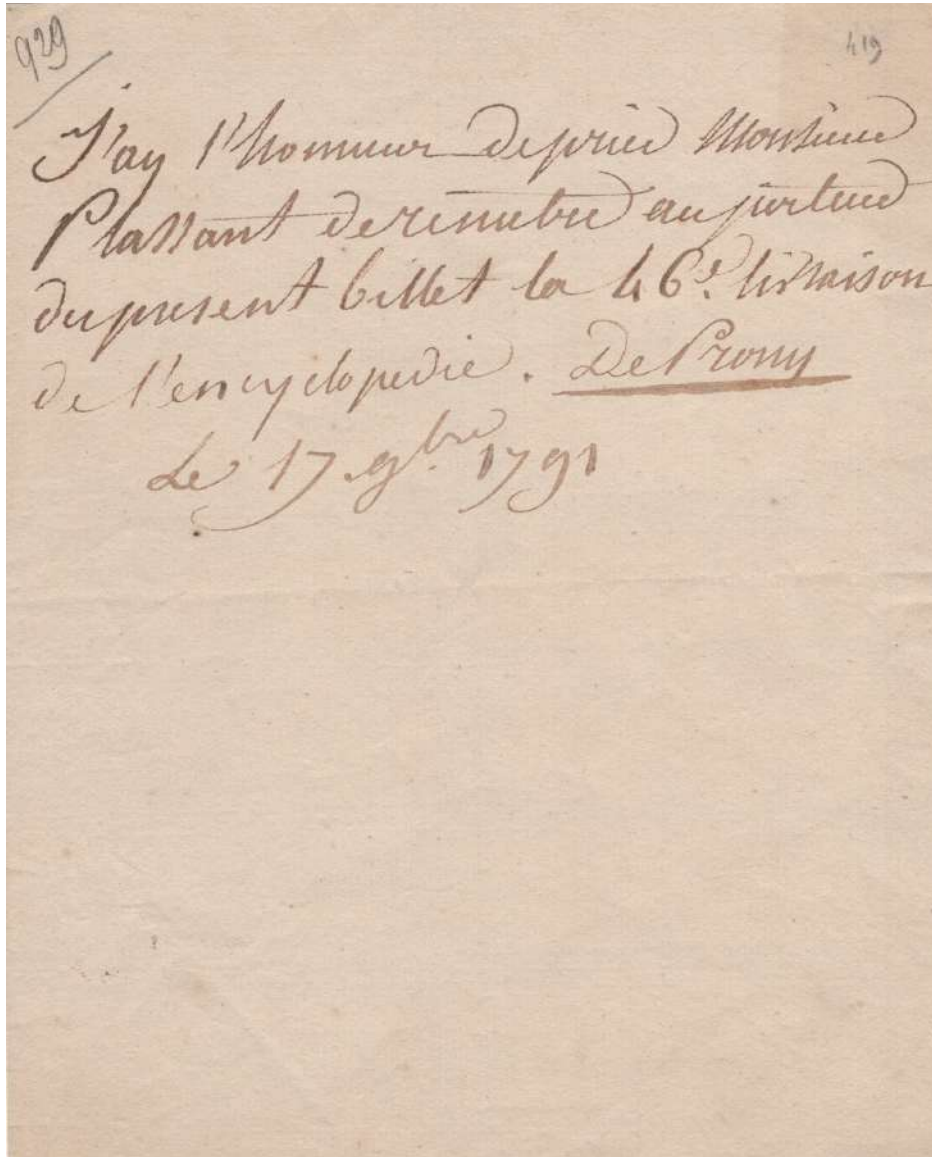 929
419
J'ay l'honneur de prier Monsieur
Plassant de remettre au porteur
du present billet la 46e. livraison
de l'encyclopedie. De Prony
Le 17 9bre 1791